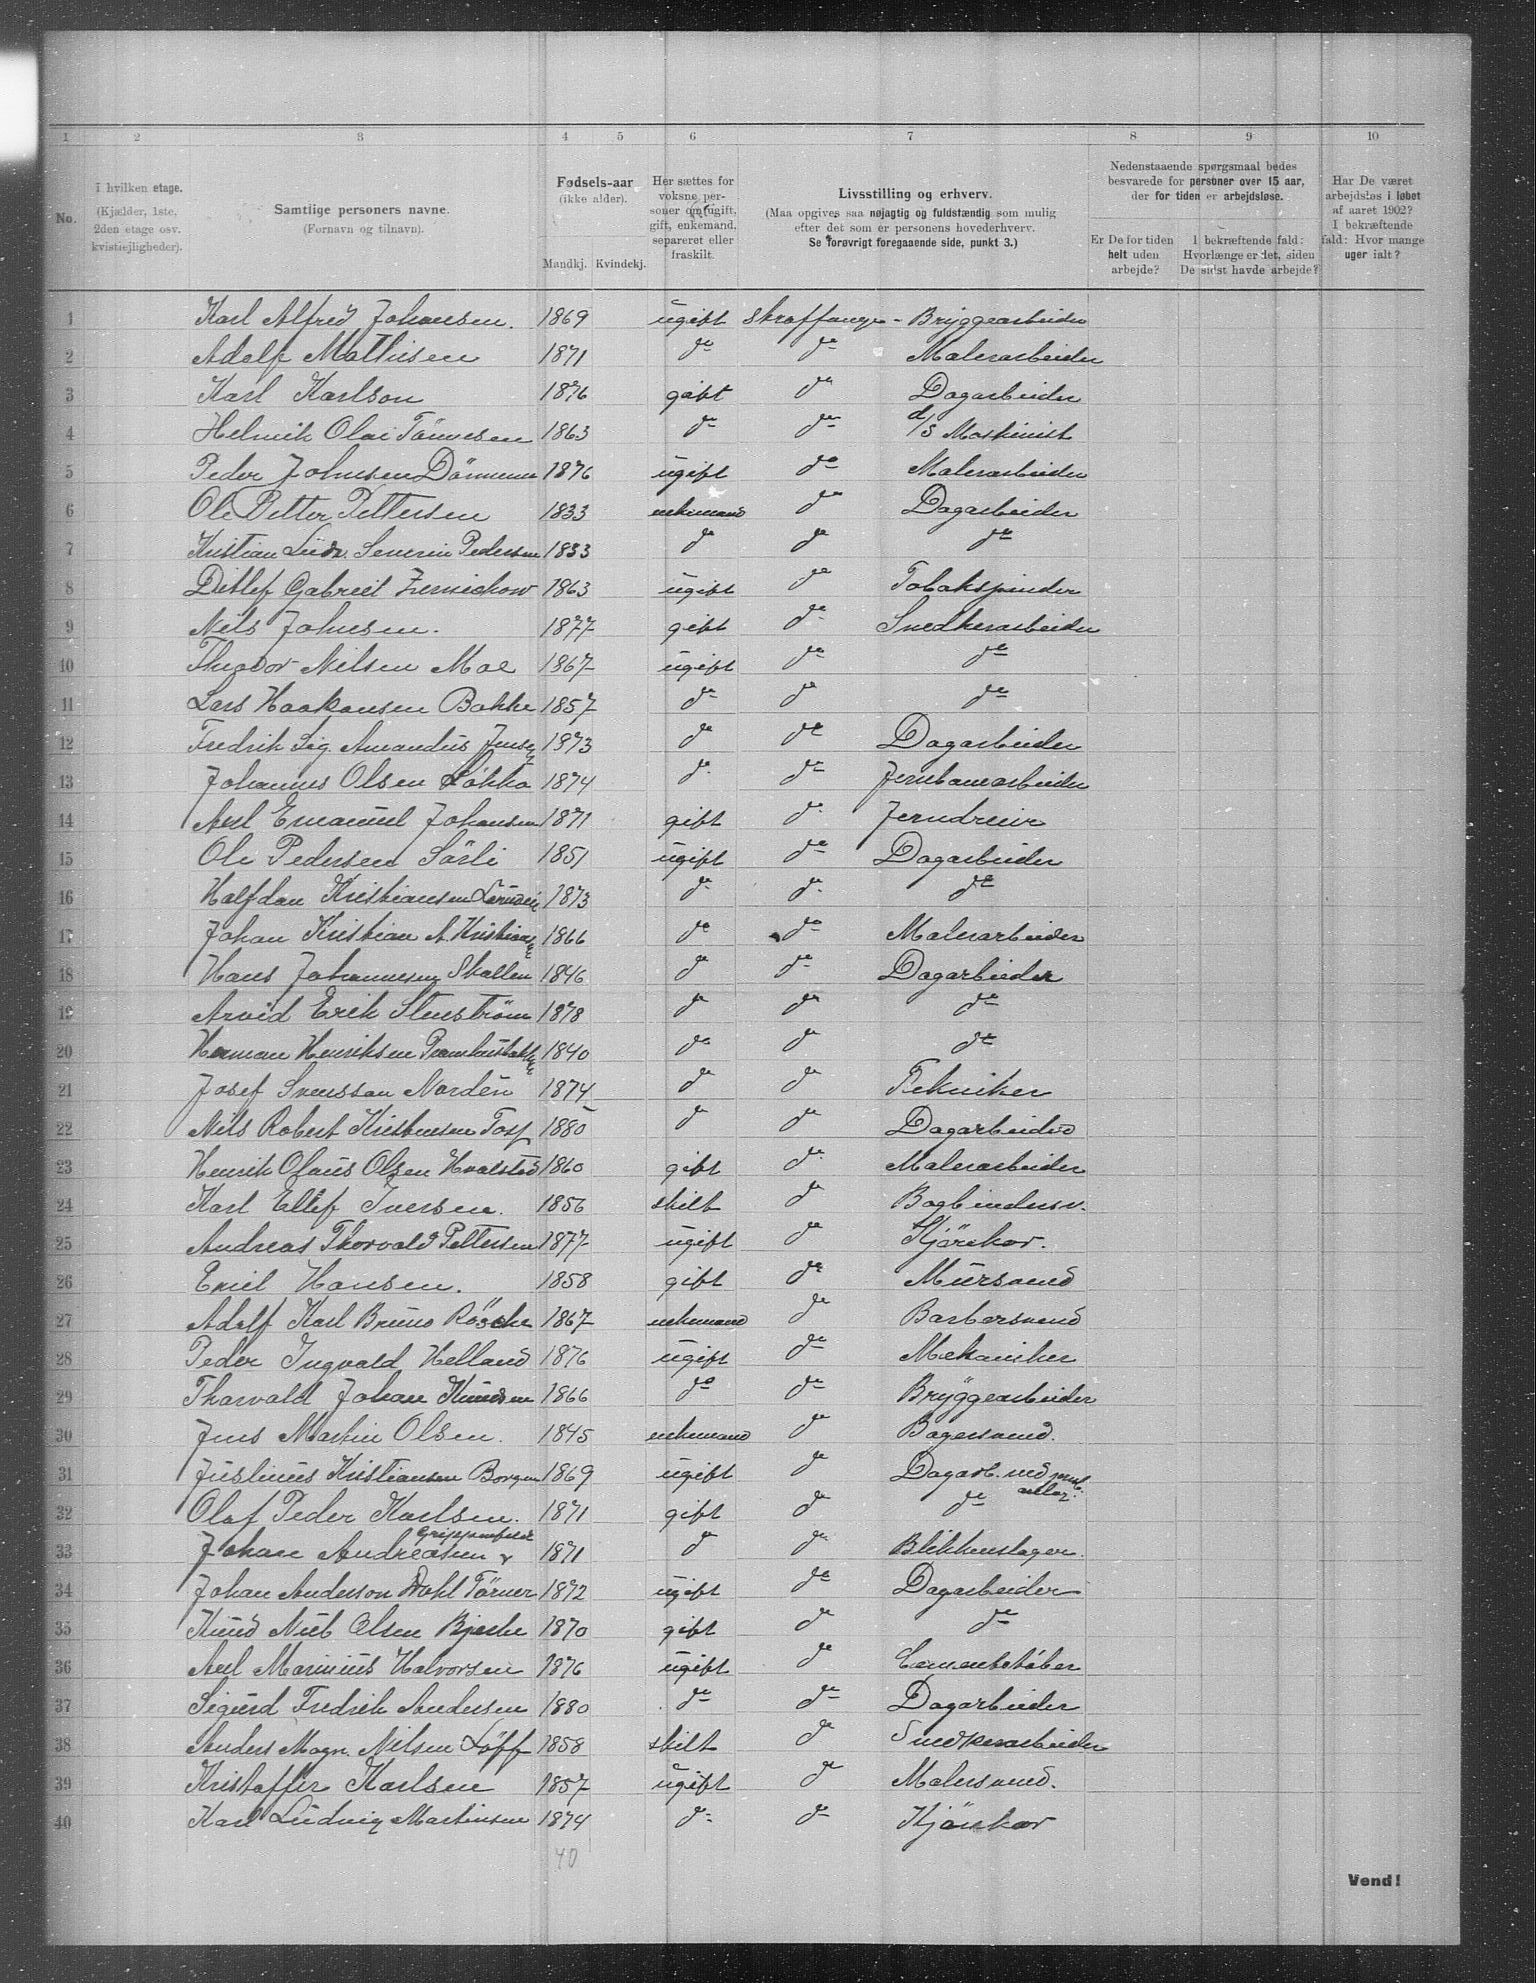 1 2 3 4 5 6 7 8 9 10
No.
I hvilken etage.
(Kjælder, 1ste, 2den etage osv. kvistlejligheder).
Samtlige personers navne.
(Fornavn og tilnavn).
Fødsels-aar
(ikke alder).
Mandkj. Kvindekj.
Her sættes for voksne personer om ugift, gift, enkemand, separeret eller fraskilt.
Livsstilling og erhverv.
(Maa opgives saa nøjagtig og fuldstændig som mulig efter det som er personens hovederhverv.
Se forøvrigt foregaaende side, punkt 3.)
Nedenstaaende spørgsmaal bedes besvarede for personer over 15 aar, der for tiden er arbejdsløse.
Er De for tiden helt uden arbejde?
I bekræftende fald: Hvorlænge er det, siden De sidst havde arbejde?
Har De været arbejdsløs i løbet af aaret 1902? I bekræftende fald: Hvor mange uger ialt?
1 Karl Alfred Johansen. 1869 ugift Straffange - Bryggearbeider
2 Adolf Mathisen 1871 do do Malerarbeider
3 Karl Karlson 1876 gift do Dagarbeider
4 Helmik Olai Tönnesen 1863 do do d/s Maskinist
5 Peder Johnsen 1876 ugift do Malerarbeider
6 Ole Petter Pettersen 1833 enkemand do Dagarbeider
7 Kristian Ludv. Severin Pedersen 1833 do do do
8 Ditlef Gabriel Zernichow 1863 ugift do Tobakspinder
9 Nils Johnsen. 1877 gift do Snedkerarbeider
10 Theodor Nilsen Moe 1867 ugift do do
11 Lars Haakonsen Bakke 1857 do do do
12 Fredrik Sig. Amandus Jensen 1873 do do Dagarbeider
13 Johannes Olsen Løkka 1874 do do Jernbanearbeider
14 Axel Emanuel Johansen 1871 gift do Jerndreier
15 Ole Pedersen Sörli 1851 ugift do Dagarbeider
16 Halfdan Kristiansen 1873 do do do
17 Johan Kristian A. Kristiansen 1866 do do Malerarbeider
18 Hans Johannesen Skallen 1846 do do Dagarbeider
19 Arvid Erik Stenström 1878 do do do
20 Herman Henriksen 1840 do do do
21 Josef Svensson Nordén 1874 do do Tekniker
22 Nils Robert Kristensen 1880 do do Dagarbeider
23 Henrik Olaus Olsen Hvalstad 1860 gift do Malerarbeider
24 Karl Ellef Iversen. 1856 skilt do Bogbindersv.
25 Andreas Thorvald Pettersen 1877 ugift do Kjörekar.
26 Emil Hansen. 1858 gift do Mursvend
27 Adolf Karl Bruno Röscke 1867 enkemand do Barbersvend
28 Peder Ingvald Helland 1876 ugift do Mekaniker
29 Thorvald Johan Knudsen 1866 do do Bryggearbeider
30 Jens Martin Olsen. 1845 enkemand do Bagersvend.
31 Justinus Kristiansen Borgen 1869 ugift do Dagarb. ved
32 Olaf Peder Karlsen. 1871 gift do do
33 Johan Andreasen Grippenfeldt 1871 do do Blikkenslager.
34 Johan Anderson Dahl Törner 1872 ugift do Dagarbeider
35 Knud Nub Olsen Bjerke 1870 gift do do
36 Axel Marinius Halvorsen 1876 ugift do Cementstöber
37 Sigurd Fredrik Andersen 1880 do do Dagarbeider
38 Anders Magn. Nilsen Löff 1858 skilt do Snedkerarbeider
39 Kristoffer Karlsen 1857 ugift do Malersvend.
40 Karl Ludvig Martinsen 1874 do do Kjörekar
40
Vend!